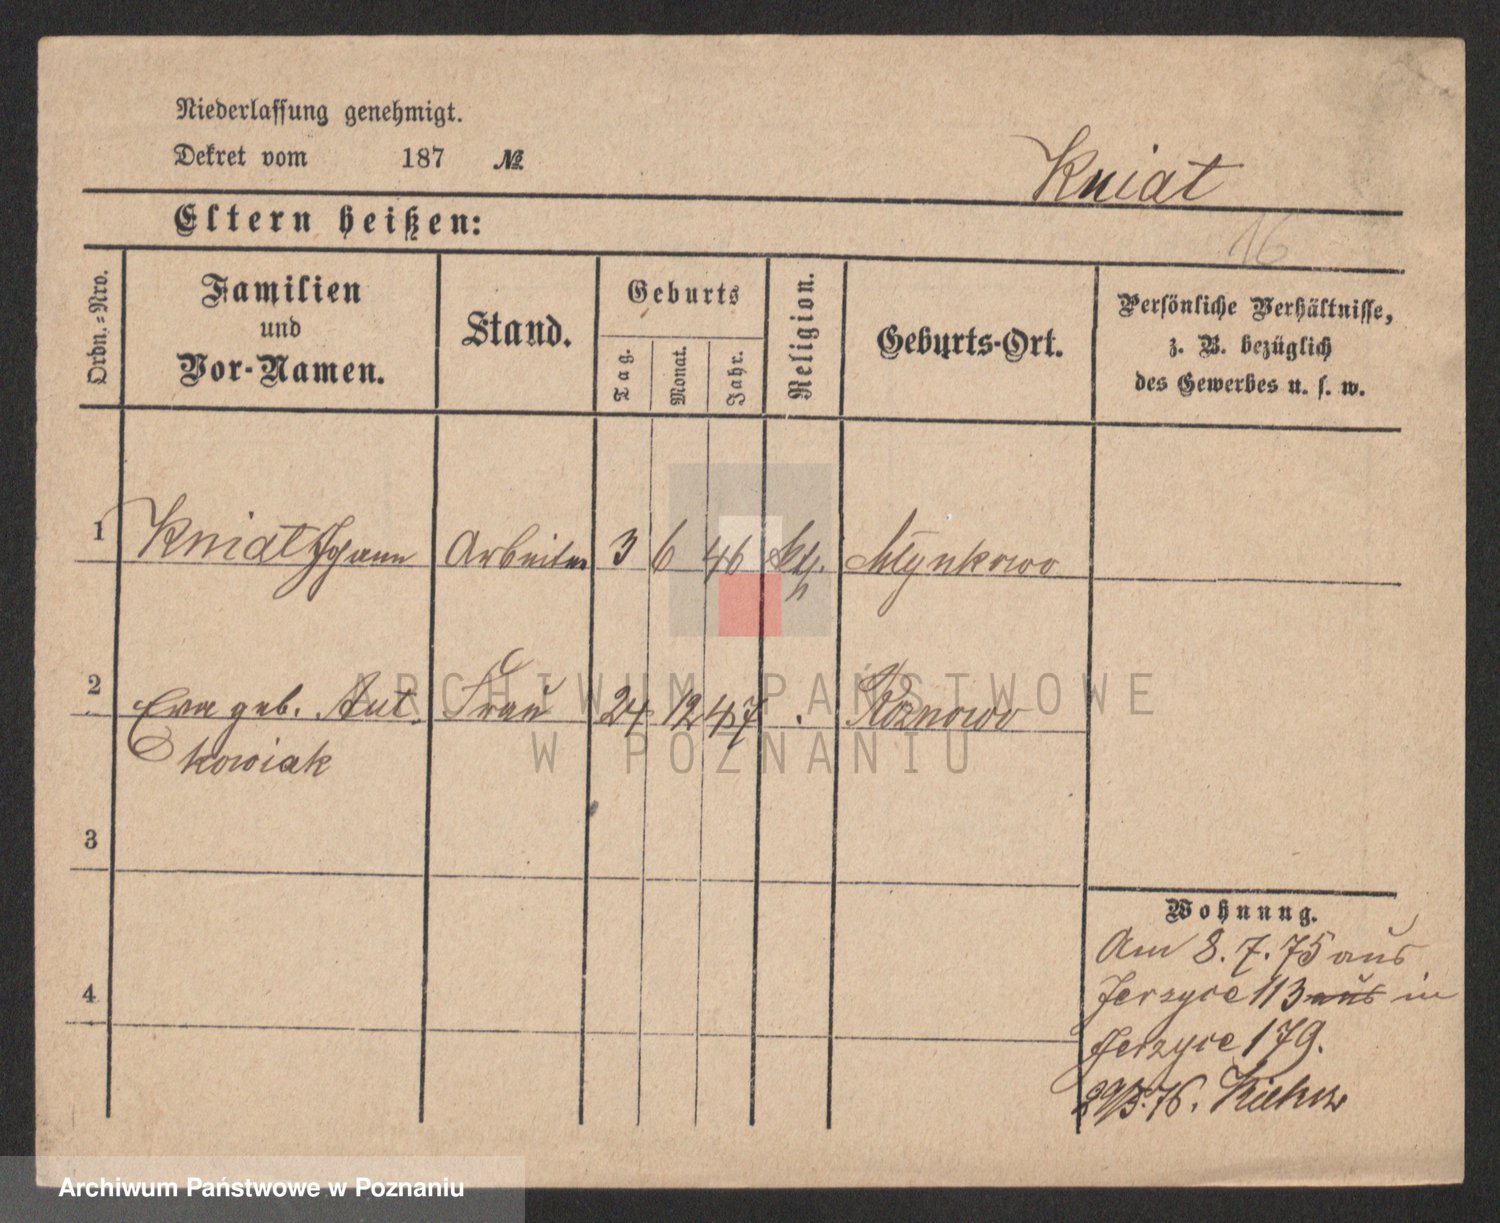 Niederlassung genehmigt.
Dekret vom 187 №
Kniat
Eltern heißen:
16
Ordn.-Nro.
Familien
und
Vor-Namen.
Stand.
Geburts
Tag.
Monat.
Jahr.
Religion.
Geburts-Ort.
Persönliche Verhältnisse,
z. B. bezüglich
des Gewerbes u. s. w.
1 Kniat Johann Arbeiter 3 6 46 kth. Młynkowo
2 Eva geb. Ant. Frau 24 12 47 . Roznowo
kowiak
3
4
Wohnung.
Am 8.7.75 aus
Jerzyce 113 aus in
Jerzyce 179.
29/3.76.
ARCHIWUM PAŃSTWOWE
W POZNANIU
Archiwum Państwowe w Poznaniu